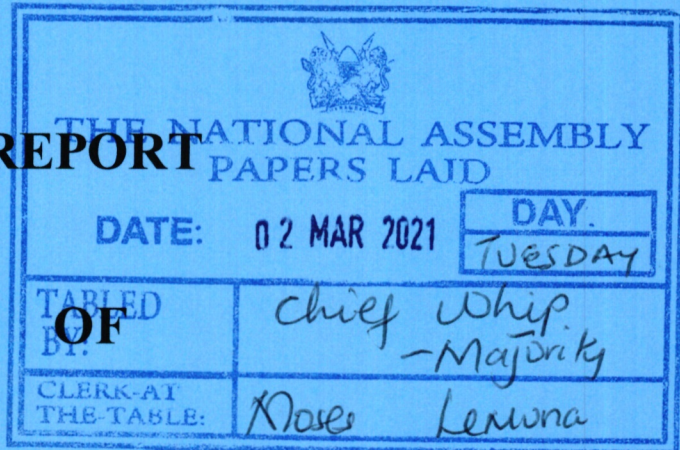 THE NATIONAL ASSEMBLY
REPORT
PAPERS LAID
DATE: 02 MAR 2021
DAY.
TUESDAY
TABLED
BY:
OF
Chief Whip
-Majority
CLERK-AT
THE-TABLE:
Moses Lemuna